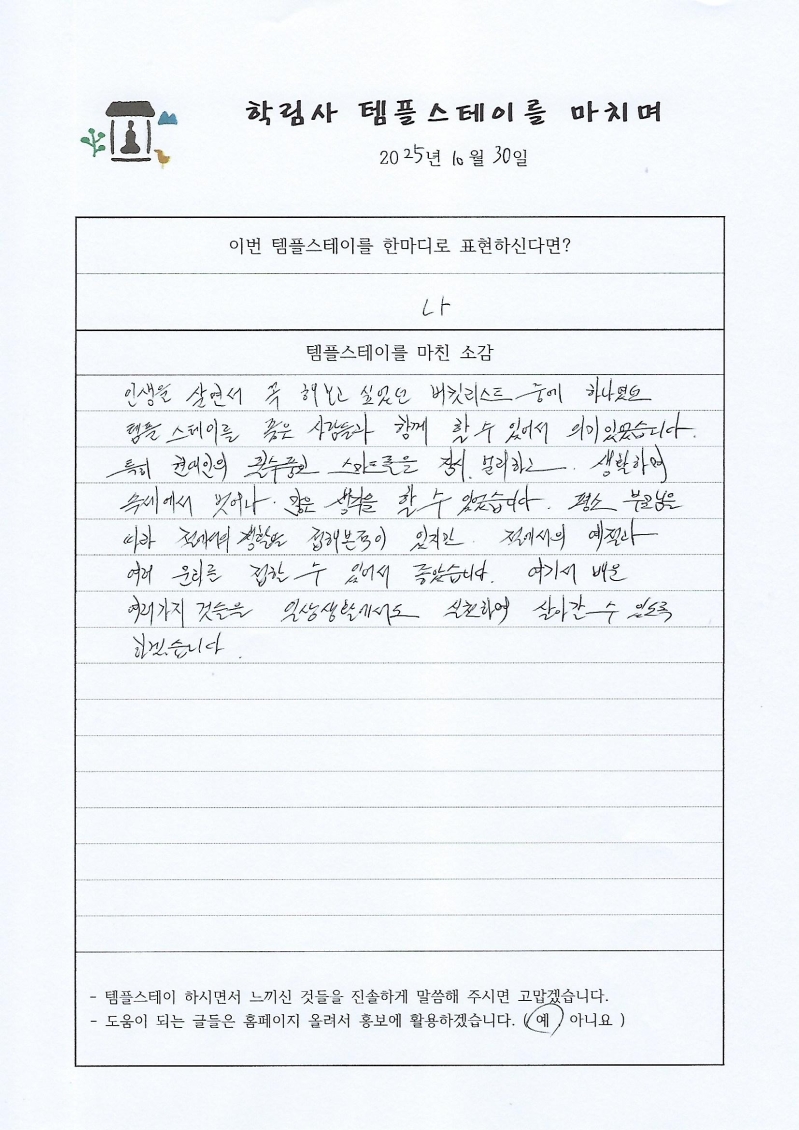 학림사 템플스테이를 마치며
2025년 10월 30일
이번 템플스테이를 한마디로 표현하신다면?
나
템플스테이를 마친 소감
인생을 살면서 꼭 해보고 싶었던 버킷리스트 중에 하나였던
템플 스테이를 좋은 사람들과 함께 할 수 있어서 의미있었습니다.
특히 현대인의 필수품인 스마트폰을 잠시 멀리하고 생활하여
속세에서 벗어나 많은 생각을 할 수 있었습니다. 평소 부모님을
따라 절에서의 생활도 접해본적이 있지만 절에서의 예절과
여러 문화를 접할 수 있어서 좋았습니다. 여기서 배운
여러가지 것들을 일상생활에서도 실천하여 살아갈 수 있도록
하겠습니다.
- 템플스테이 하시면서 느끼신 것들을 진솔하게 말씀해 주시면 고맙겠습니다.
- 도움이 되는 글들은 홈페이지 올려서 홍보에 활용하겠습니다. ( 예 아니요 )